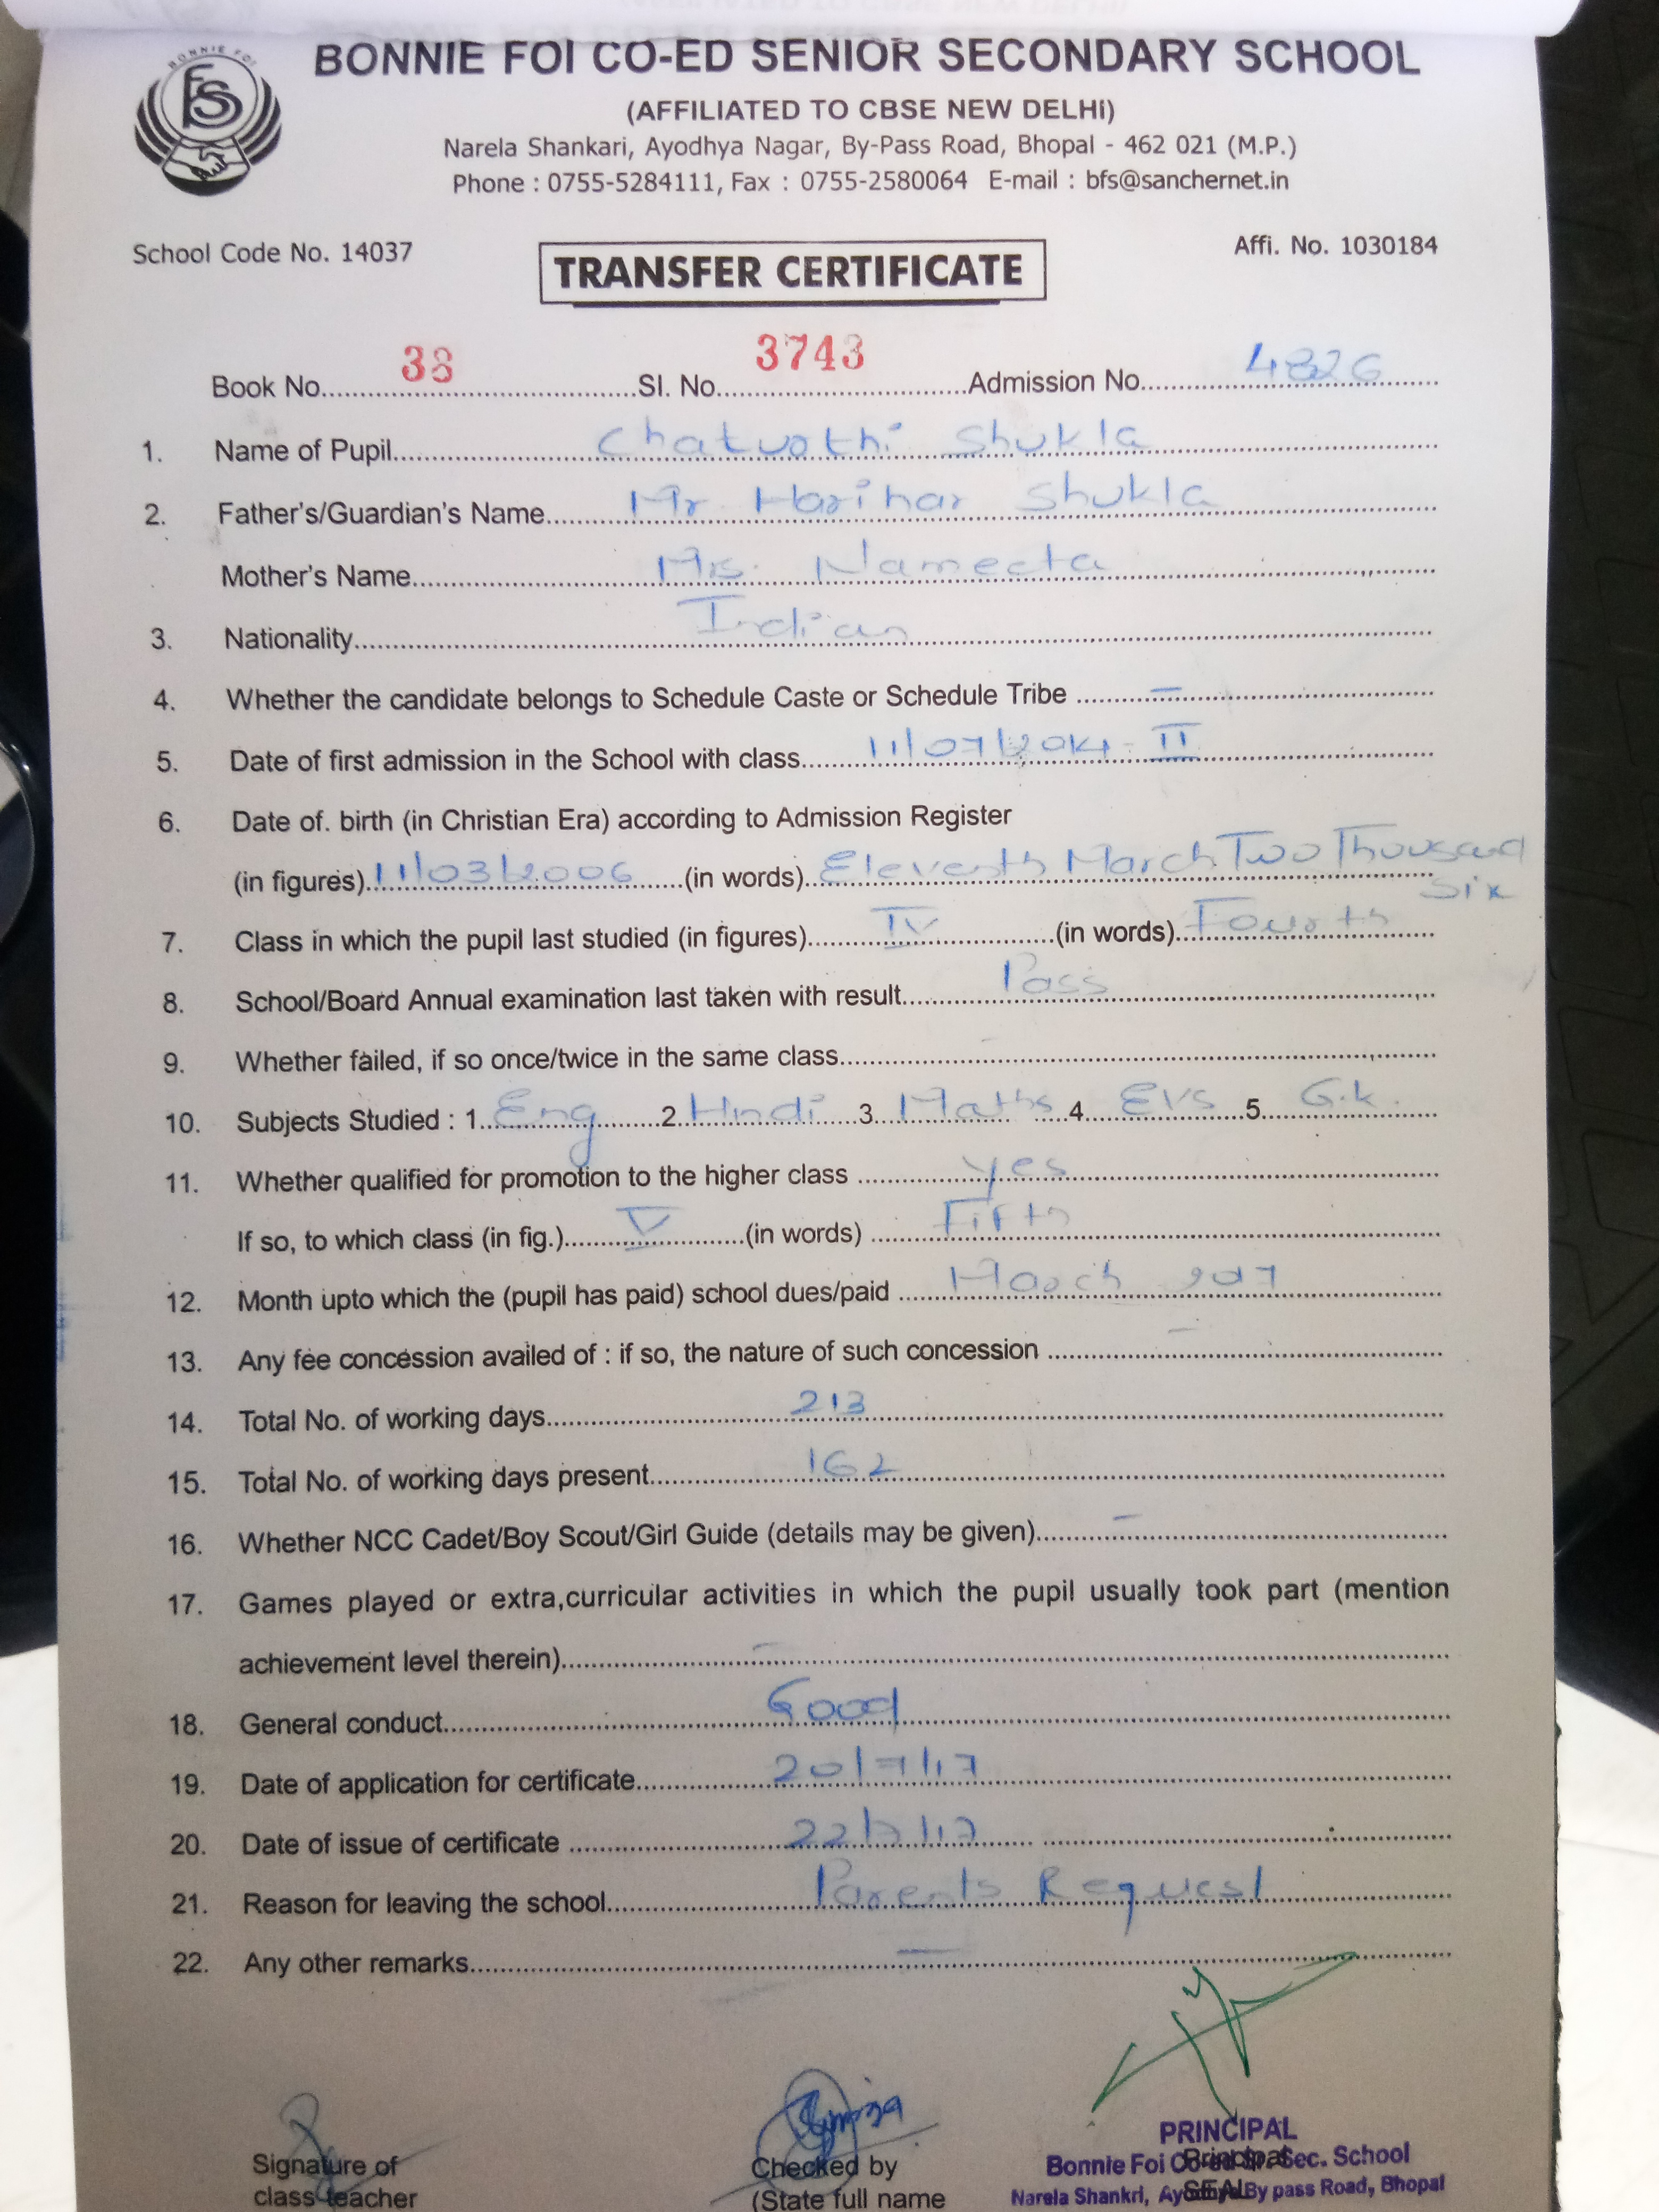 BONNIE FOI
FS
BONNIE FOI CO-ED SENIOR SECONDARY SCHOOL
(AFFILIATED TO CBSE NEW DELHi)
Narela Shankari, Ayodhya Nagar, By-Pass Road, Bhopal - 462 021 (M.P.)
Phone : 0755-5284111, Fax : 0755-2580064 E-mail : bfs@sanchernet.in
School Code No. 14037 Affi. No. 1030184
TRANSFER CERTIFICATE
Book No. 38 SI. No. 3743 Admission No. 4826
1. Name of Pupil Chaturthi Shukla
2. Father's/Guardian's Name Mr Harihar Shukla
Mother's Name Mrs. Nameeta
3. Nationality Indian
4. Whether the candidate belongs to Schedule Caste or Schedule Tribe –
5. Date of first admission in the School with class 11/07/2014 - II
6. Date of. birth (in Christian Era) according to Admission Register
(in figures) 11/03/2006 (in words) Eleventh March Two Thousand
Six
7. Class in which the pupil last studied (in figures) IV (in words) Fourth
8. School/Board Annual examination last taken with result Pass
9. Whether failed, if so once/twice in the same class –
10. Subjects Studied : 1. Eng 2. Hindi 3. Maths 4. EVS 5. G.k.
11. Whether qualified for promotion to the higher class yes
If so, to which class (in fig.) V (in words) Fifth
12. Month upto which the (pupil has paid) school dues/paid March 2017
13. Any fee concession availed of : if so, the nature of such concession –
14. Total No. of working days 213
15. Total No. of working days present 162
16. Whether NCC Cadet/Boy Scout/Girl Guide (details may be given) –
17. Games played or extra,curricular activities in which the pupil usually took part (mention
achievement level therein) –
18. General conduct Good
19. Date of application for certificate 20/7/17
20. Date of issue of certificate 22/7/17
21. Reason for leaving the school Parents Request
22. Any other remarks –
PRINCIPAL
Signature of Checked by Principal
Bonnie Foi Co-ed Sr. Sec. School
class teacher (State full name SEAL
Narela Shankri, Ayodhya By pass Road, Bhopal